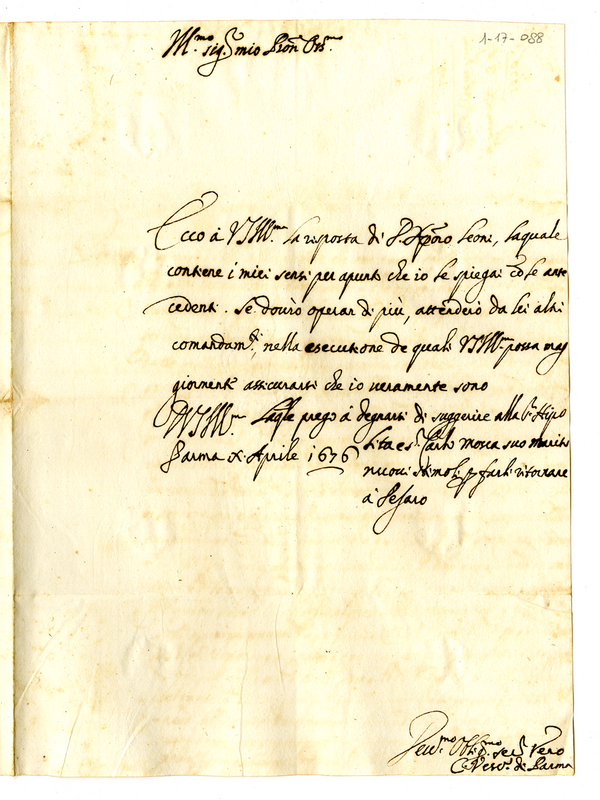 1-17-088
Ill.mo sig.r mio Pron Oss.mo
Ecco à V.S. Ill.ma la risposta di S. Hipp.o Leoni, laquale
contiene i miei sensi per apunti che io le spiegai cō le ante
cedenti. Se dourò operar di più, attenderò da lei altri
comandam.ti, nella esecutione de quali V.S. Ill.ma possa mag
giormente assicurarsi che io ueramente sono
D V.S. Ill.ma Laqle prego à degnarsi di suggerire alla S.ra Hipo
lita e s.r Carlo Mosca suo marito
Parma xi Aprile 1676
nuoui stimoli p farli ritornare
à Pesaro
Deu.mo Obl.mo ser.re uero
Il Vesc.o di Parma